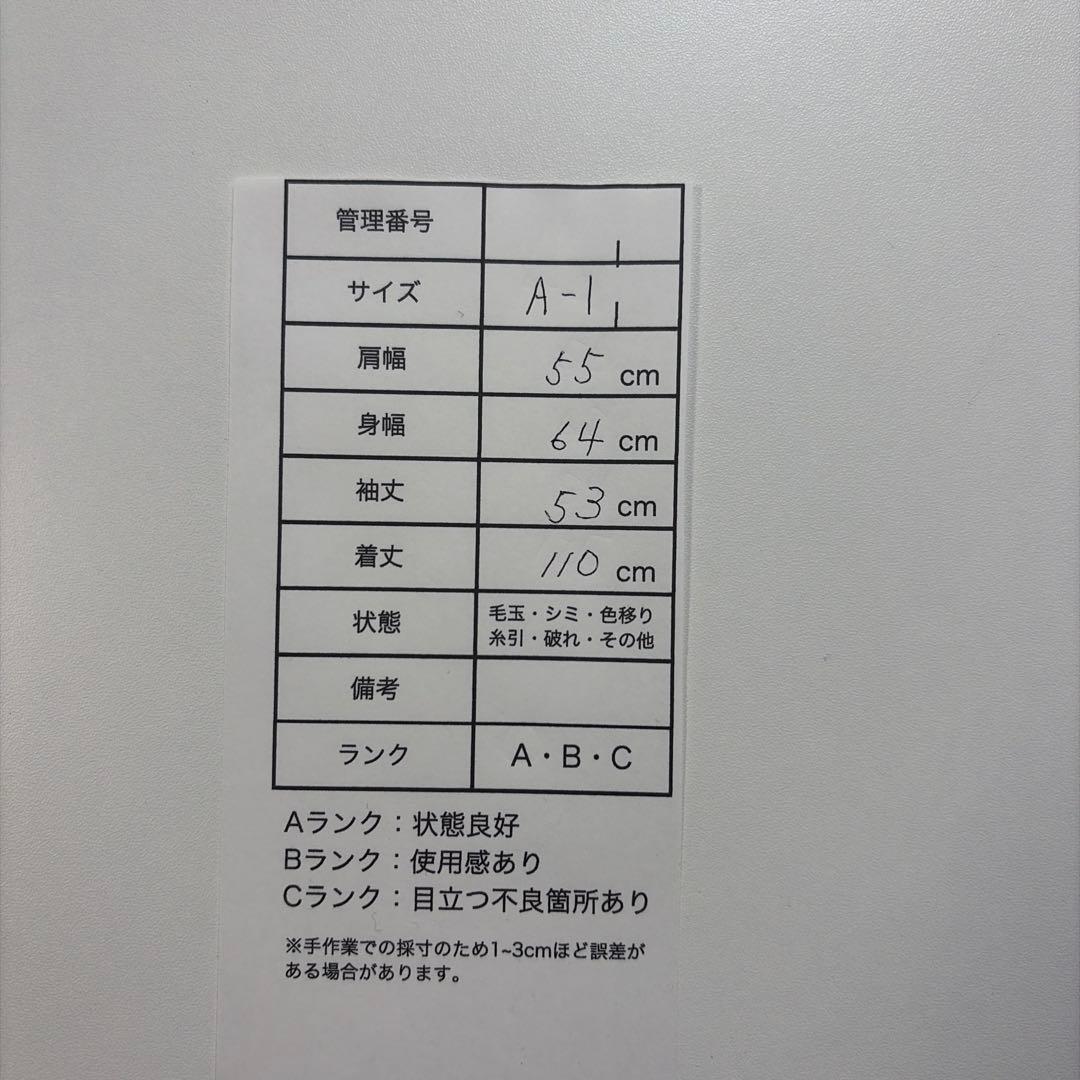 管理番号
サイズ A-1
肩幅 55 cm
身幅 64 cm
袖丈 53 cm
着丈 110 cm
状態 毛玉・シミ・色移り
糸引・破れ・その他
備考
ランク A・B・C
Aランク：状態良好
Bランク：使用感あり
Cランク：目立つ不良箇所あり
※手作業での採寸のため1~3cmほど誤差が
ある場合があります。